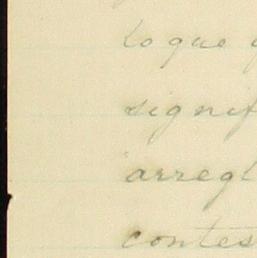 lo que
signif
arregl
contes